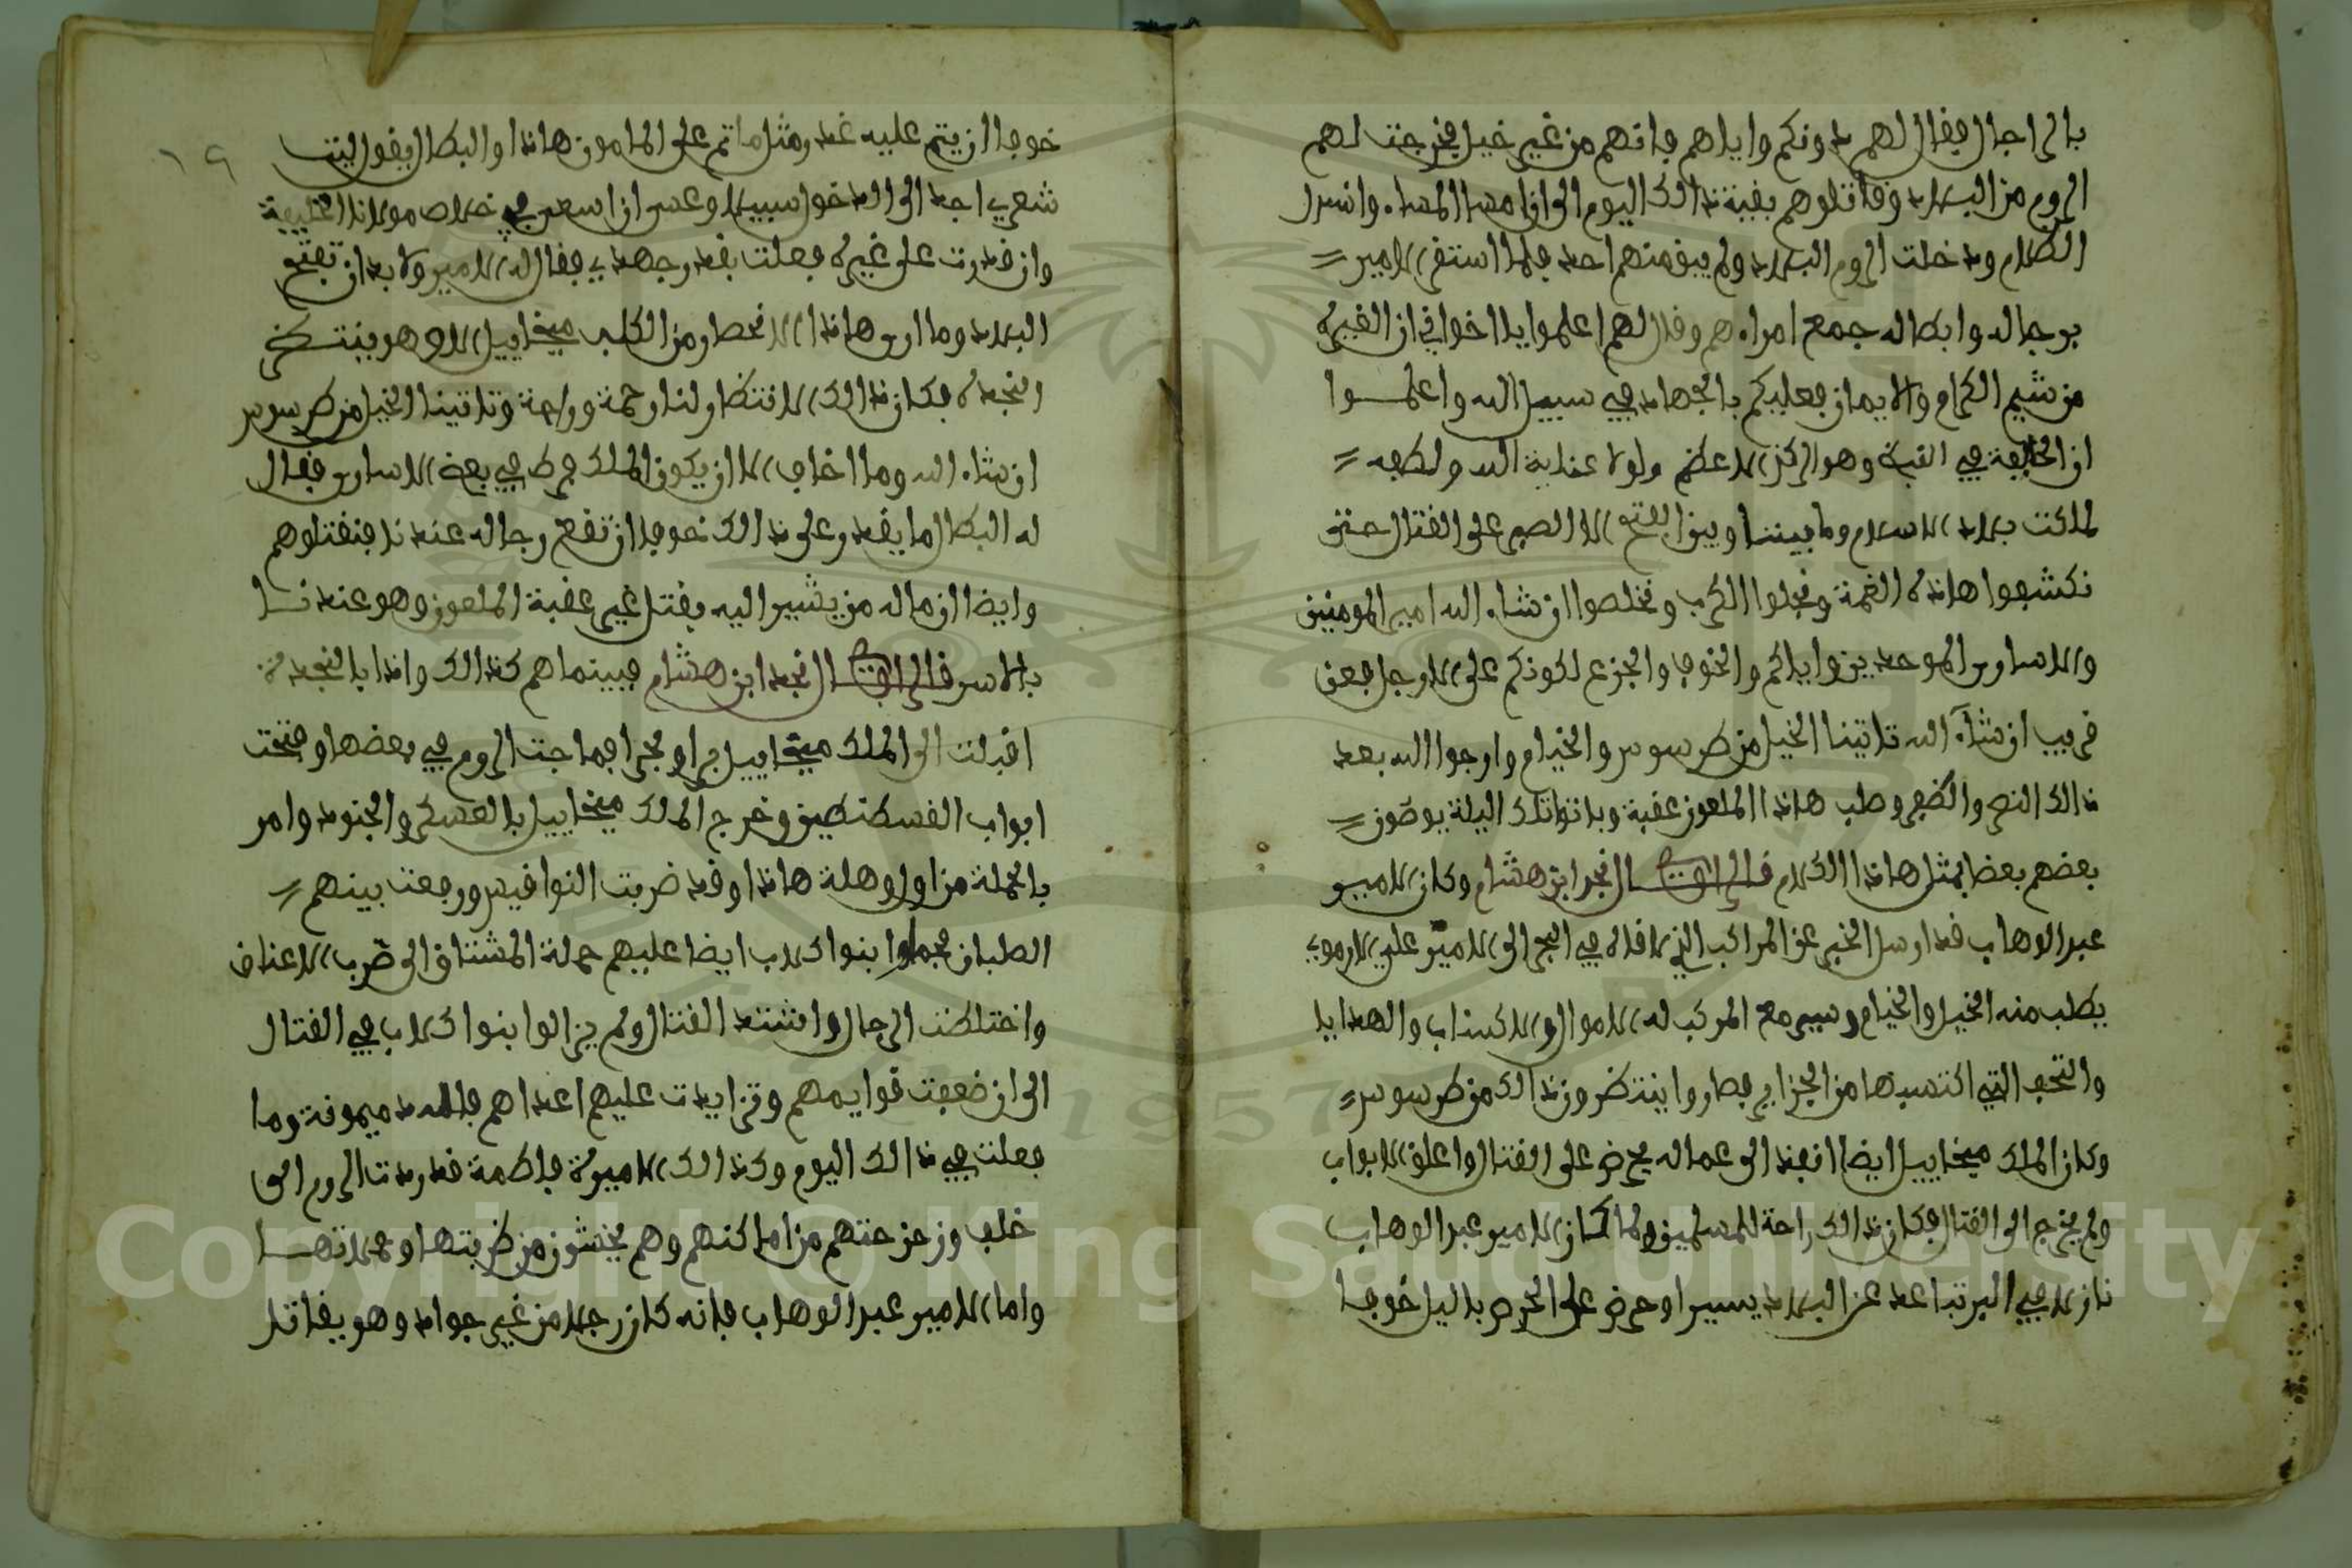 بالرجال فقال لهم دونكم واياهم فانهم من غير خيل فخرجت لهم
الروم من البلاد وقاتلوهم بقية ذالك اليوم الى ان امسا المساء وانسدل
الظلام ودخلت الروم البلاد ولم يبق منهم احد فلما استقر الامير
برجاله وابطاله جمع امراءهم وقال لهم اعلموا يا اخواني ان الغيرة
من شيم الكرام والايمان فعليكم بالجهاد في سبيل الله واعلموا
ان الخليفة في القبة وهو الركن الاعظم ولولا عناية الله ولطفه
لملكت بلاد الاسلام وما بيننا وبين الفتح الا الصبر على القتال حتى
نكشفوا هاذه الغمة ونجلوا الكرب ونخلصوا ان شاء الله امير المومنين
والاسارى الموحدين واياكم والخوف والجزع لكونكم على الارجل فعن
قريب ان شاء الله تاتينا الخيل من طرسوس والخيام وارجوا الله بعد
ذالك النصر والظفر وصلب هاذا الملعون عقبة وباتوا تلك اليلة يوصون
بعضهم بعضا بمثل هاذا الكلام قال الراوي النجد ابن هشام وكان الامير
عبد الوهاب قد ارسل الخبر عن المراكب الذي لاقاه في البحر الى الامير علي الارموي
يطلب منه الخيل والخيام وسير مع المركب له الاموال والاكساب والهدايا
والتحف التي اكتسبها من الجزاير فصاروا ينتظرون ذالك من طرسوس
وكان الملك ميخاييل ايضا انفذ الى عماله يحرض على القتال واغلق الابواب
ولم يخرج الى القتال فكان ذالك راحة للمسلمين ولما كان الامير عبد الوهاب
نازلا في البر تباعد عن البلاد يسيرا وحرض على الحرص باليل خوفا
خوفا ان يتم عليه غدر مثل ما تم على المامون هاذا والبطال يقول ليت
شعري اجد الى الدخول سبيلا وعسى ان اسعى في خلاص مولانا الخليفة
وان قدرت على غيره فعلت بقدر جهدي فقال له الامير ولا بد ان تفتح
البلاد وما ارى هاذا الانحصار من الكلب ميخاييل الا وهو ينتظر
النجدة فكان ذالك الانتظار لنا رحمة وراحة وتاتينا الخيل من طرسوس
ان شاء الله وما اخاف الا ان يكون الملك فرط في بعض الاسارى فقال
له البطال ما يقدر على ذالك خوفا ان تقع رجاله عندنا فنقتلوهم
وايضا ان ماله من يشير اليه بقتل غير عقبة الملعون وهو عندنا
بالاسر قال الراوي النجد ابن هشام فبينما هم كذالك واذا بالنجدة
اقبلت الى الملك ميخاييل برا وبحرا فماجت الروم في بعضها وفتحت
ابواب القسطنطين وخرج الملك ميخاييل بالعسكر والجنود وامر
بالحملة من اول وهلة هاذا وقد ضربت النواقيس ورفعت بينهم
الصلبان فحملوا بنوا كلاب ايضا عليهم حملة المشتاق الى ضرب الاعناق
واختلطت الرجال واشتد القتال ولم يزالوا بنوا كلاب في القتال
الى ان ضعفت قوايمهم وتزايدت عليهم اعداهم فالله در ميمونة وما
فعلت في ذالك اليوم وكذالك الاميرة فاطمة قد ردت الروم الى
خلف وزحزحتهم من اماكنهم وهم يخشون من ضربتها وحملاتها
واما الامير عبد الوهاب فانه كان رجلا من غير جواد وهو يقاتل
١٩
Copyright © King Saud University
1957